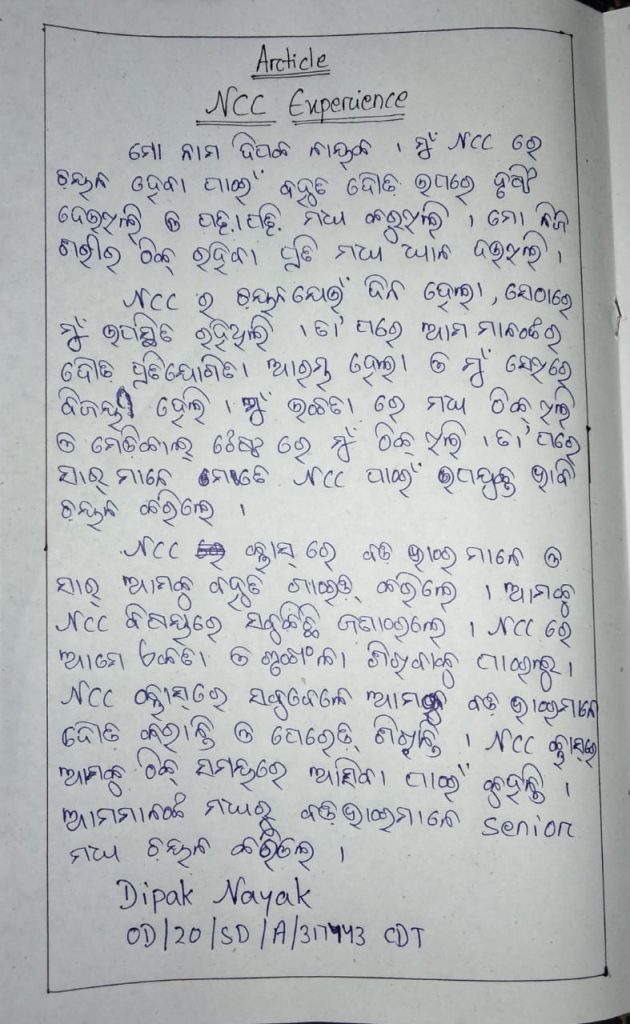 Arcticle
NCC Experience
ମୋ ନାମ ଦିପକ ନାୟକ । ମୁଁ NCC ରେ
ଚୟନ ହେବା ପାଇଁ ବହୁତ ଦୌଡ ଉପରେ ଦୃଷ୍ଟି
ଦେଉଥିଲି ଓ ପଢ଼ାପଢ଼ି ମଧ୍ୟ କରୁଥିଲି । ମୋ ନିଜ
ଶରୀର ଠିକ୍ ରହିବା ପ୍ରତି ମଧ୍ୟ ଧ୍ୟାନ ଦଉଥିଲି ।
NCC ର ଚୟନ ଯେଉଁ ଦିନ ହେଲା, ସେଠାରେ
ମୁଁ ଉପସ୍ଥିତ ରହିଥିଲି । ତା' ପରେ ଆମ ମାନଙ୍କର
ଦୌଡ ପ୍ରତିଯୋଗିତା ଆରମ୍ଭ ହେଲା ଓ ମୁଁ ସେଥିରେ
ବିଜୟୀ ହେଲି । ମୁଁ ଉଚ୍ଚତା ରେ ମଧ୍ୟ ଠିକ୍ ଥିଲି
ଓ ମେଡିକାଲ୍ ଟେଷ୍ଟ ରେ ମୁଁ ଠିକ୍ ଥିଲି । ତା' ପରେ
ସାର୍ ମାନେ ମୋତେ NCC ପାଇଁ ଉପଯୁକ୍ତ ଭାବି
ଚୟନ କରିଲେ ।
NCC କ୍ଲାସ୍ ରେ ବଡ ଭାଇ ମାନେ ଓ
ସାର୍ ଆମକୁ ବହୁତ ଗାଇଡ୍ କରିଲେ । ଆମକୁ
NCC ବିଷୟରେ ସବୁକିଛି ଜଣାଇଲେ । NCC ରେ
ଆମେ ଏକତା ଓ ଶୃଙ୍ଖଳା ଶିଖିବାକୁ ପାଇଲୁ ।
NCC କ୍ଲାସ୍‌ରେ ସବୁବେଳେ ଆମକୁ ବଡ ଭାଇମାନେ
ଦୌଡ କରାନ୍ତି ଓ ପେରେଡ୍ ଶିଖାନ୍ତି । NCC କ୍ଲାସ୍‌ରେ
ଆମକୁ ଠିକ୍ ସମୟରେ ଆସିବା ପାଇଁ କୁହନ୍ତି ।
ଆମମାନଙ୍କ ମଧ୍ୟରୁ ବଡଭାଇମାନେ Senior
ମଧ୍ୟ ଚୟନ କରିଲେ ।
Dipak Nayak
OD/20/SD/A/317443 CDT